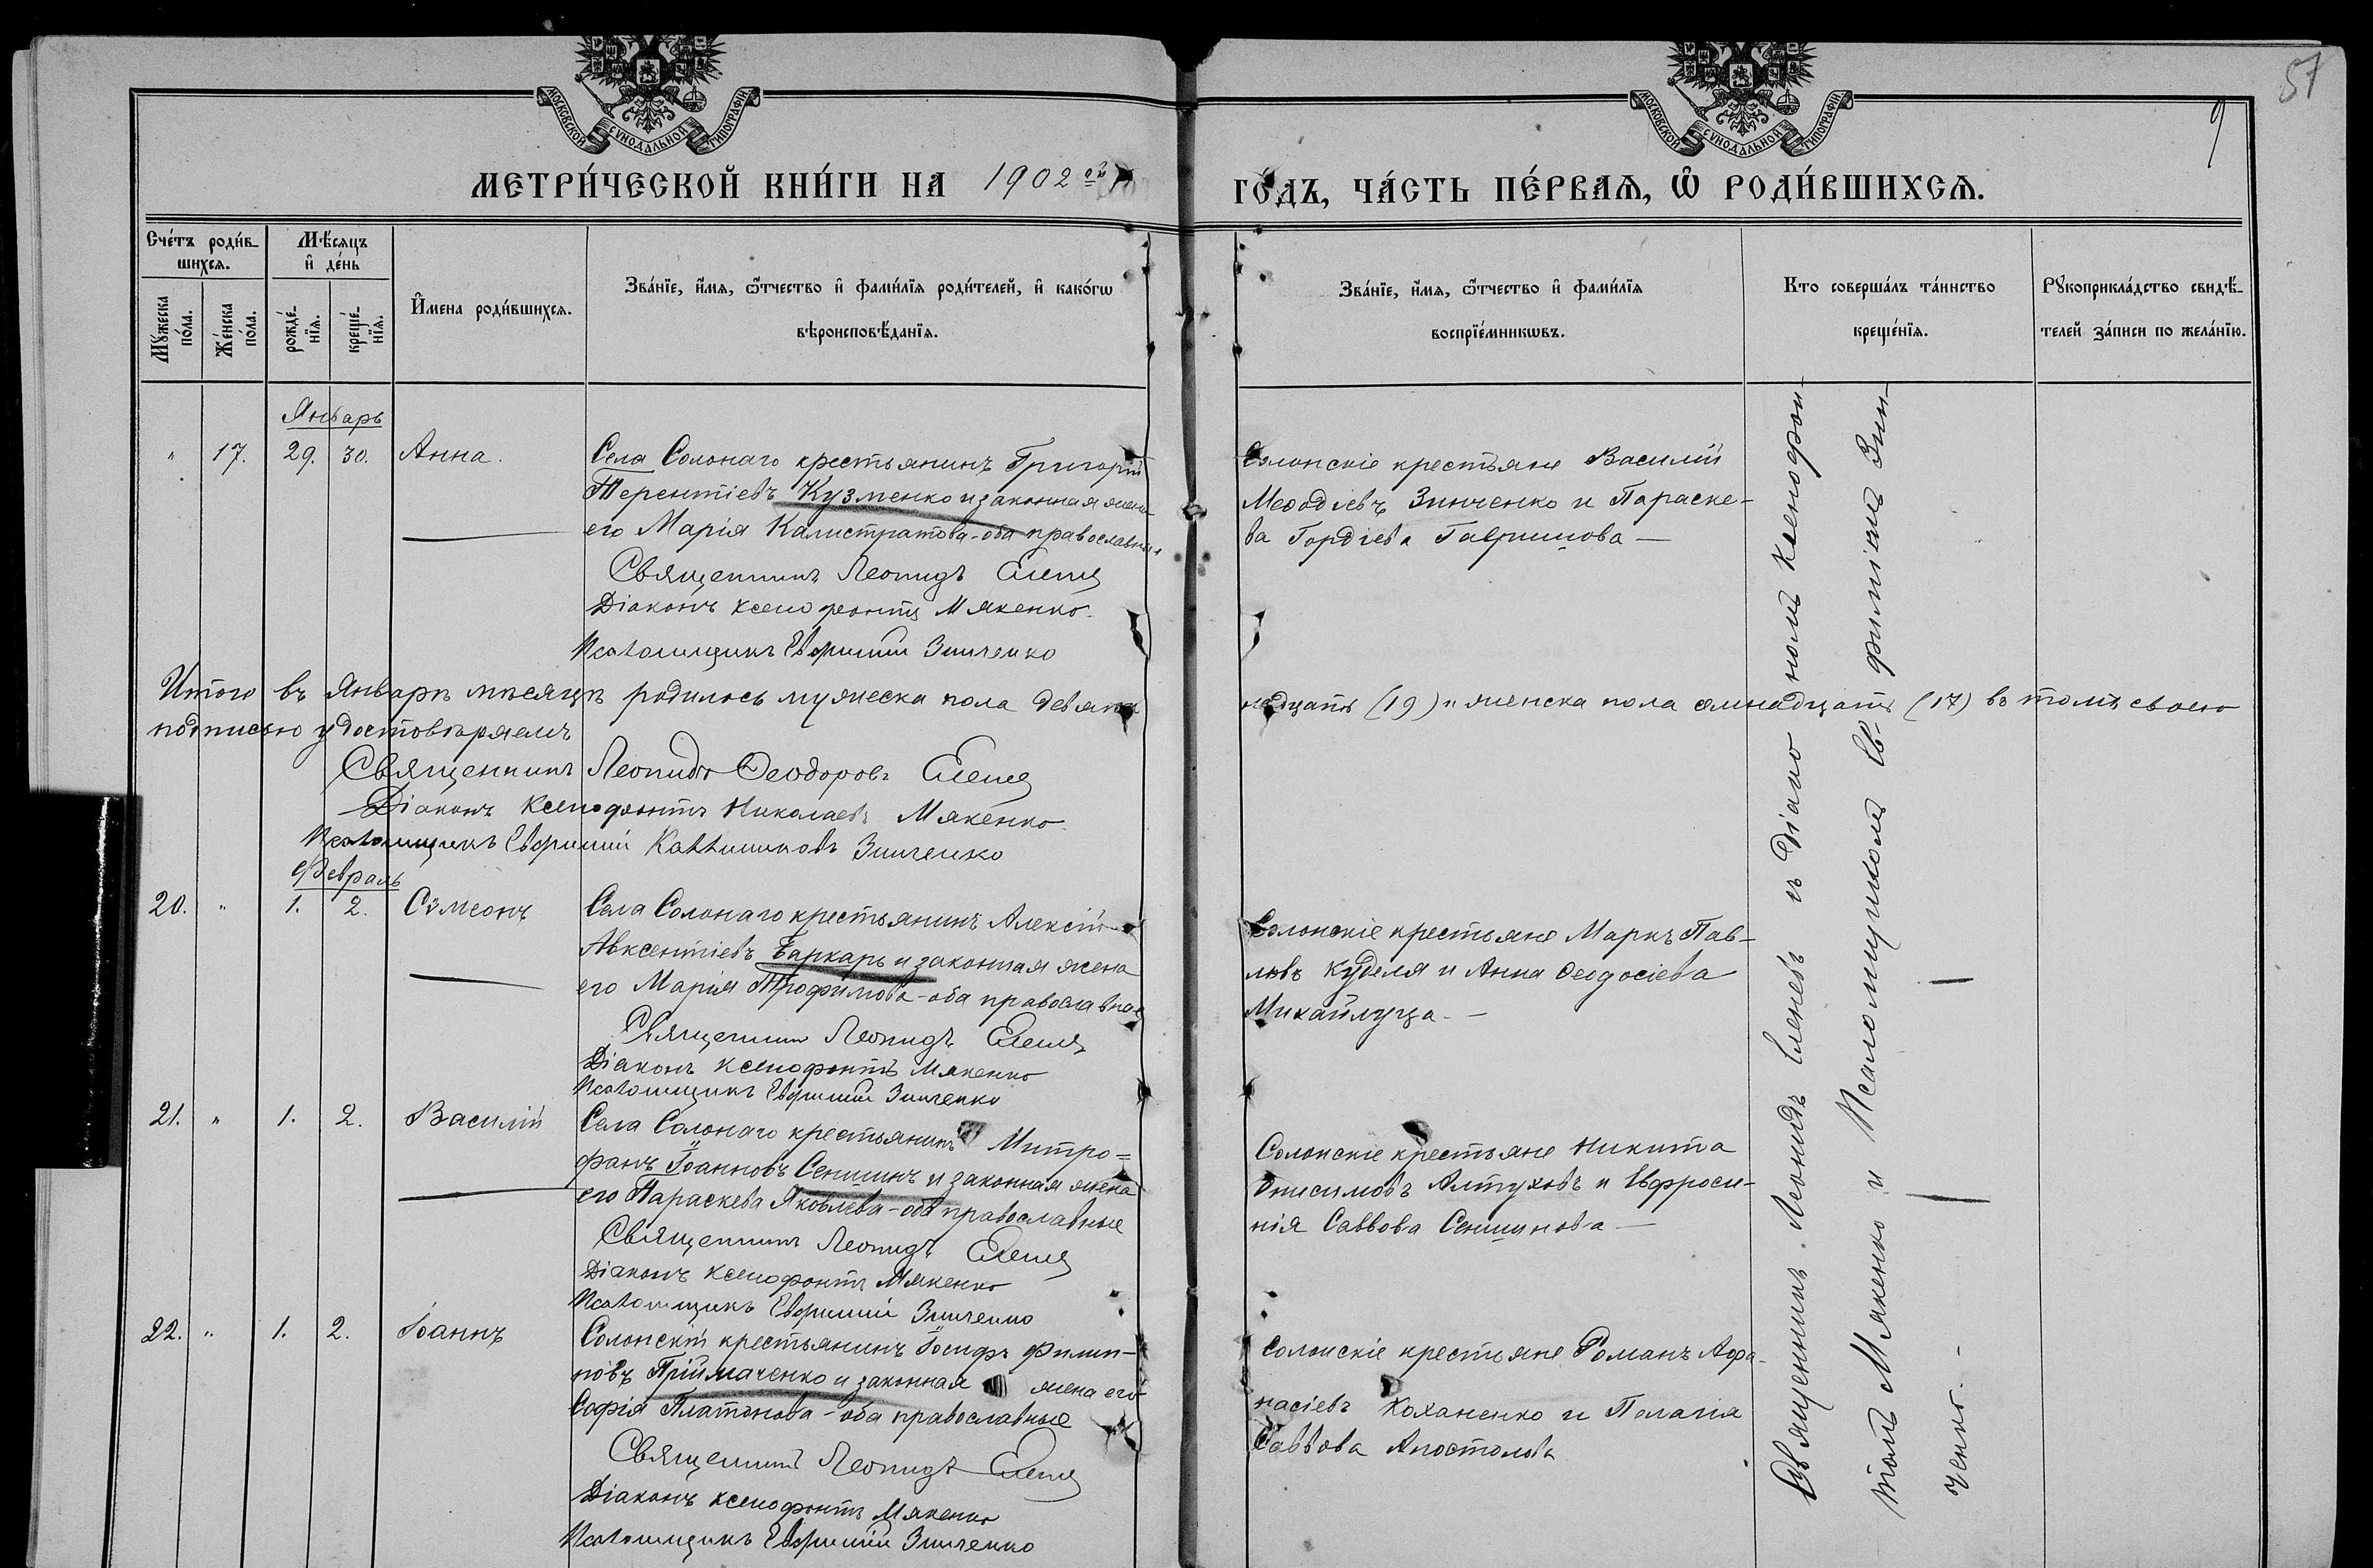 57
9
МОСКОВСКОЙ СѴНОДАЛЬНОЙ ТИПОГРАФІИ
МОСКОВСКОЙ СѴНОДАЛЬНОЙ ТИПОГРАФІИ
МЕТРИ́ЧЕСКОЙ КНИ́ГИ НА 1902 ой ГО́ДЪ, ЧА́СТЬ ПЕ́РВАѦ, Ѽ РОДИ́ВШИХСѦ.
Сче́тъ роди́в-
шихсѧ.
Мꙋ́жеска по́ла.
Же́нска по́ла.
Мѣ́сѧцъ
и҆ де́нь
рожде́нїѧ.
креще́нїѧ.
И҆мена роди́вшихсѧ.
Зва́нїе, и҆́мѧ, ѻ҆́тчество и҆ фами́лїѧ роди́телей, и҆ како́гѡ
вѣроисповѣ́данїѧ.
Зва́нїе, и҆́мѧ, ѻ҆́тчество и҆ фами́лїѧ
воспрїе́мникѡвъ.
Кто соверша́лъ та́инство
креще́нїѧ.
Рꙋкоприкла́дство свидѣ́-
телей за́писи по жела́нїю.
Январь
" 17. 29. 30. Анна.
Села Солонаго крестьянинъ Григорій
Терентіевъ Кузменко и законная жена
его Марія Калистратова - оба православные
Священникъ Леонидъ Еленевъ
Діаконъ Ксенофонтъ Мякенко
Псаломщикъ Евфимій Зинченко
Солонскіе крестьяне Василій
Меѳодіевъ Зинченко и Параске-
ва Гордіева Гавришова —
Итого въ Январѣ мѣсяцѣ родилось мужеска пола девят-
надцать (19) и женска пола семнадцать (17) въ томъ своею
подписью удостовѣряемъ
Священникъ Леонидъ Ѳеодоровъ Еленевъ
Діаконъ Ксенофонтъ Николаевъ Мякенко
Псаломщикъ Евфимій Каллиниковъ Зинченко
Февраль
20. " 1. 2. Сѵмеонъ
Села Солонаго крестьянинъ Алексій
Авксентіевъ Баркарь и законная жена
его Марія Трофимова - оба православные
Священникъ Леонидъ Еленевъ
Діаконъ Ксенофонтъ Мякенко
Псаломщикъ Евфимій Зинченко
Солонскіе крестьяне Маркъ Пав-
ловъ Куделя и Анна Ѳеодосіева
Михайлуца. —
21. " 1. 2. Василій
Села Солонаго крестьянинъ Митро=
фанъ Іоанновъ Сеншинъ и законная жена
его Параскева Яковлева - оба православные
Священникъ Леонидъ Еленевъ
Діаконъ Ксенофонтъ Мякенко
Псаломщикъ Евфимій Зинченко
Солонскіе крестьяне Никита
Онисимовъ Алтуховъ и Евфроси-
нія Саввова Сеншинова —
22. " 1. 2. Іоаннъ
Солонскій крестьянинъ Іосифъ Филип-
повъ Пріймаченко и законная жена его
Софія Платонова - оба православные
Священникъ Леонидъ Еленевъ
Діаконъ Ксенофонтъ Мякенко
Псаломщикъ Евфимій Зинченко
Солонскіе крестьяне Романъ Аѳа-
насіевъ Коханенко и Пелагія
Саввова Апостолова
Священникъ Леонидъ Еленевъ съ Діакономъ Ксенофон-
томъ Мякенко и Псаломщикомъ Ев-фиміемъ Зин-
ченко. —